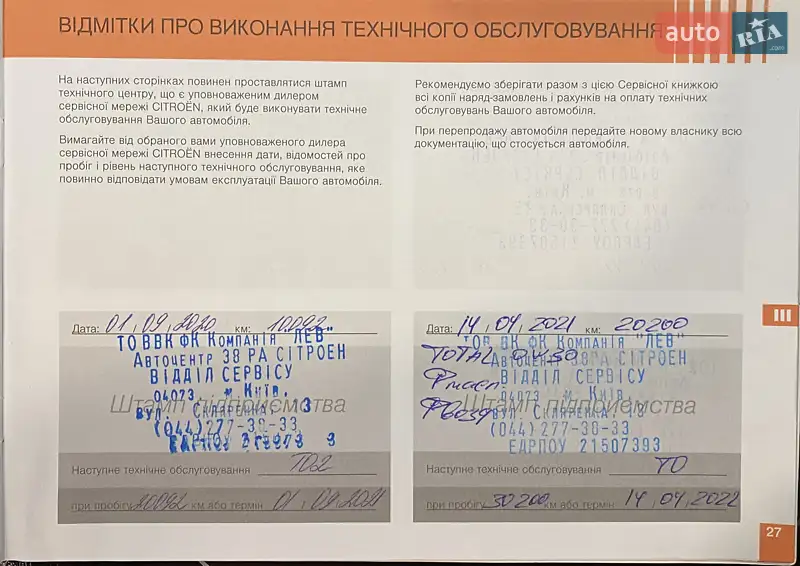 ВІДМІТКИ ПРО ВИКОНАННЯ ТЕХНІЧНОГО ОБСЛУГОВУВАННЯ
auto RIA
.com
На наступних сторінках повинен проставлятися штамп
технічного центру, що є уповноваженим дилером
сервісної мережі CITROËN, який буде виконувати технічне
обслуговування Вашого автомобіля.
Вимагайте від обраного вами уповноваженого дилера
сервісної мережі CITROËN внесення дати, відомостей про
пробіг і рівень наступного технічного обслуговування, яке
повинно відповідати умовам експлуатації Вашого автомобіля.
Рекомендуємо зберігати разом з цією Сервісної книжкою
всі копії наряд-замовлень і рахунків на оплату технічних
обслуговувань Вашого автомобіля.
При перепродажу автомобіля передайте новому власнику всю
документацію, що стосується автомобіля.
III
Дата: 01, 09, 2020 км: 10.092
ТО ВВК ФК Компанія "ЛЕВ"
Автоцентр 38 РА СІТРОЕН
ВІДДІЛ СЕРВІСУ
04073, м. Київ,
Штамп підприємства
вул. Скляренка, 3
(044)277-30-33
Наступне технічне обслуговування ТО2
при пробігу 20092 км або термін 01, 09, 2021
Дата: 14, 04, 2021 км: 20200
ТОВ ВК ФК Компанія "ЛЕВ"
TOTAL 0W30
Автоцентр 38 РА СІТРОЕН
ВІДДІЛ СЕРВІСУ
04073 м. Київ,
Штамп підприємства
вул. Скляренка, 3
(044)277-30-33
ЄДРПОУ 21507393
Наступне технічне обслуговування ТО
при пробігу 30200 км або термін 14, 04, 2022
27